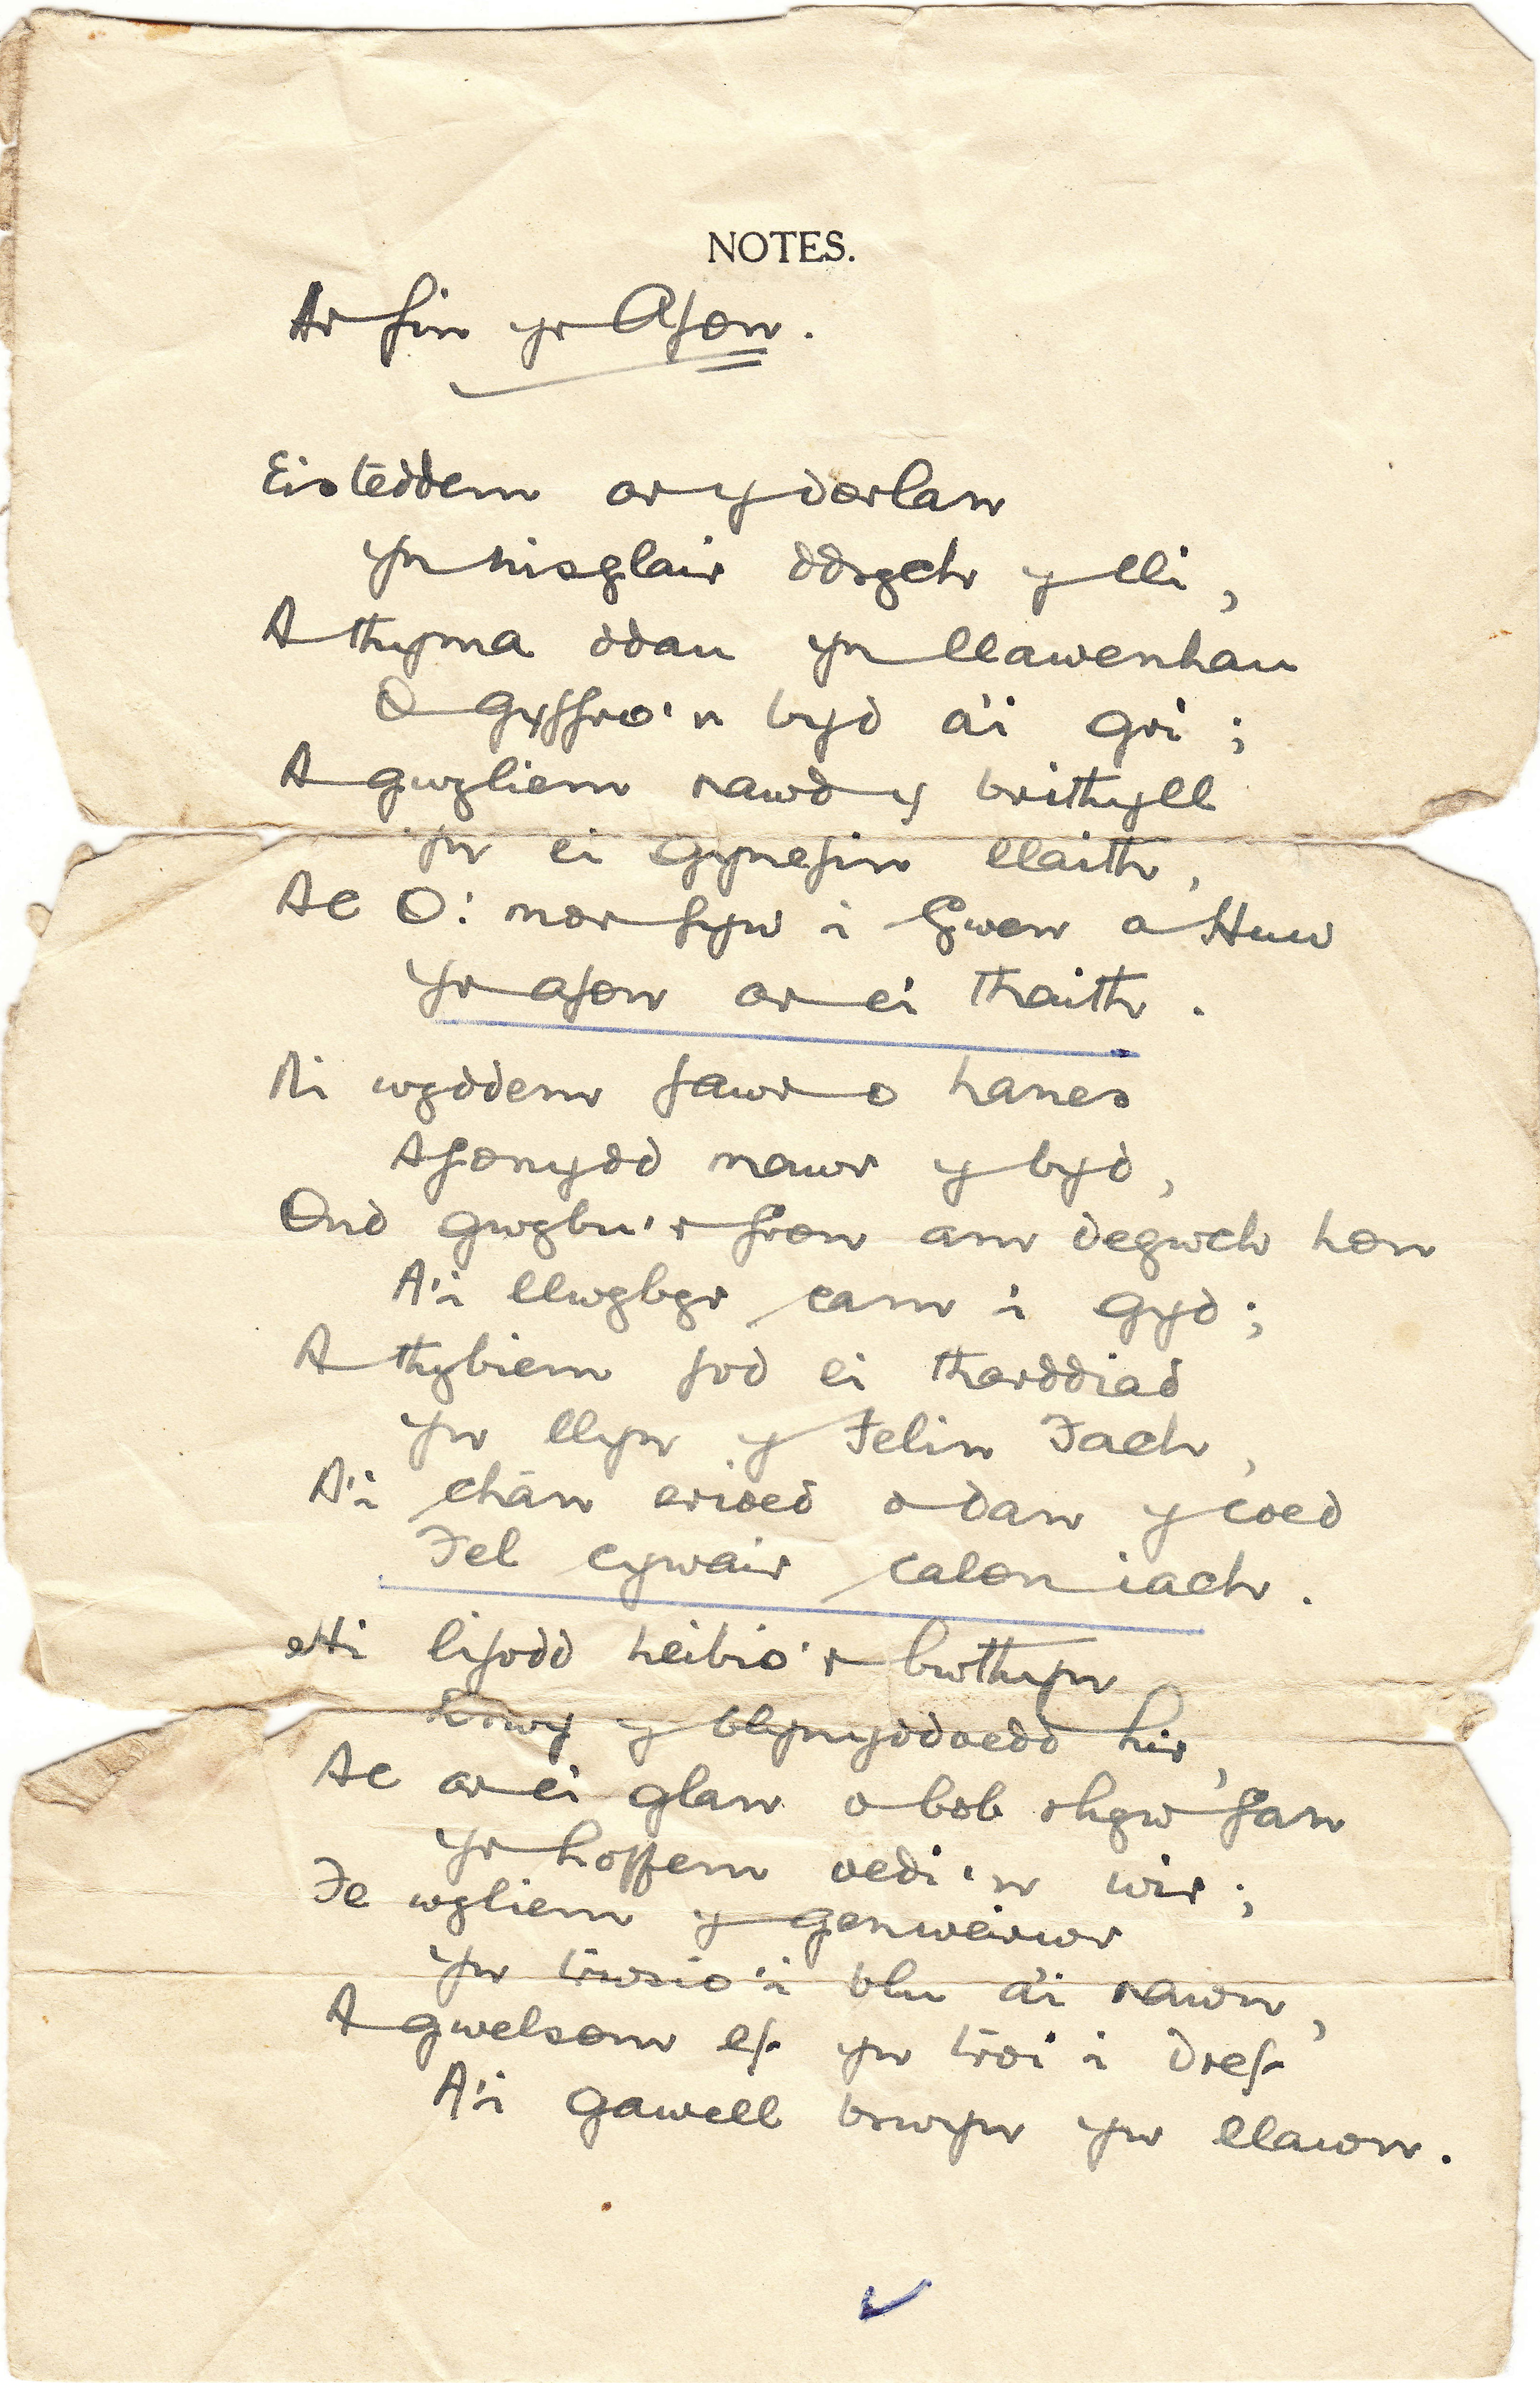 NOTES.
Ar fin yr Afon.
Eisteddem ar y dorlan
Yn nisglair ddrych y lli,
A thyma ddau yn llawenhau
O gyffro'n byd a'i gri;
A gwyliem rawd y brithyll
Yn ei gynefin llaith,
Ac O! mor fyw i Gwen a Huw
Yr afon ar ei thaith.
Ni wyddem fawr o hanes
Afonydd mawr y byd,
Ond gwybu'r fron am degwch hon
A'i llwybyr cam i gyd;
A thybiem fod ei tharddiad
Yn llyn y Felin Fach,
A'i chân erioed o dan y coed
Fel cywair calon iach.
Hi lifodd heibio'r bwthyn
Trwy y blynyddoedd hir,
Ac ar ei glan o bob rhyw fan
Yr hoffem oedi'n wir;
Fe wyliem y genweirwr
Yn trwsio'i blu a'i rawn,
A gwelsom ef yn troi i dref
A'i gawell brwyn yn llawn.